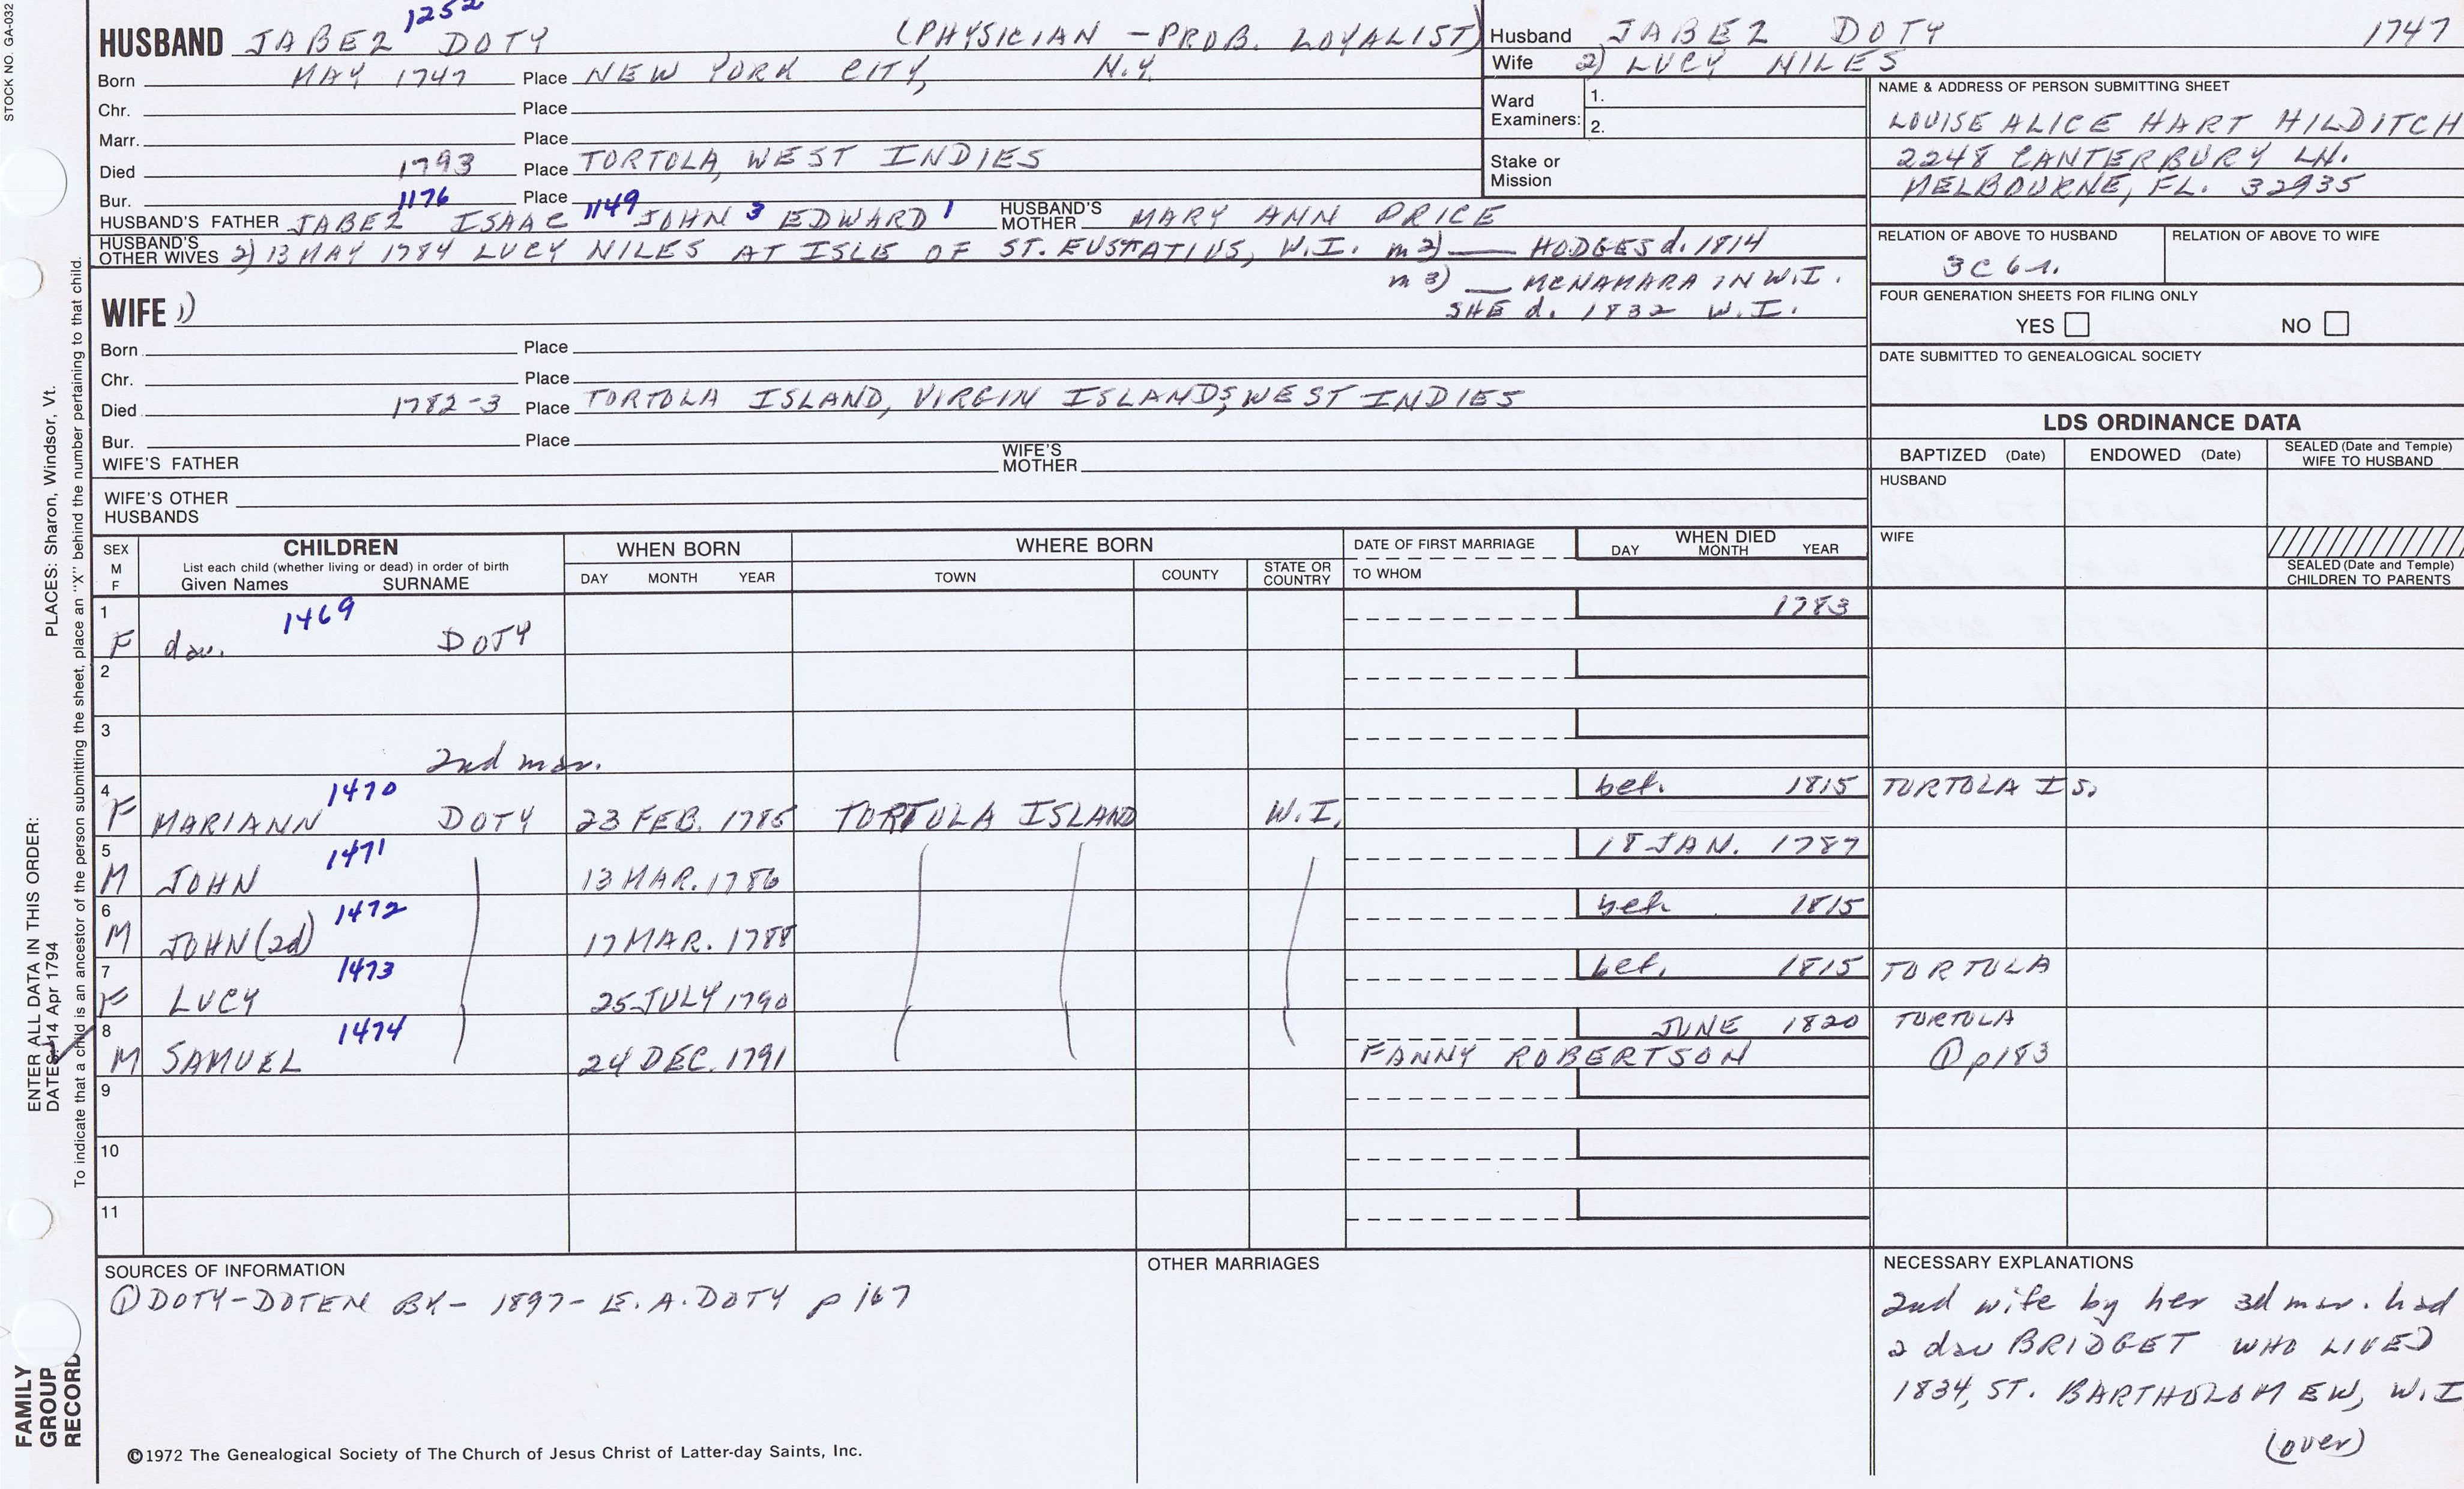 STOCK NO. GA-032
1252
HUSBAND JABEZ DOTY (PHYSICIAN - PROB. LOYALIST)
Born MAY 1747 Place NEW YORK CITY, N.Y.
Chr. Place
Marr. Place
Died 1793 Place TORTOLA, WEST INDIES
Bur. Place
1176 1149 3 1
HUSBAND'S FATHER JABEZ ISAAC JOHN EDWARD HUSBAND'S MOTHER MARY ANN PRICE
HUSBAND'S OTHER WIVES 2) 13 MAY 1784 LUCY NILES AT ISLE OF ST. EUSTATIUS, W.I. m 2) — HODGES d. 1814
m 3) — MCNAMARA IN W.I.
SHE d. 1832 W.I.
WIFE 1)
Born Place
Chr. Place
Died 1782-3 Place TORTOLA ISLAND, VIRGIN ISLANDS, WEST INDIES
Bur. Place
WIFE'S FATHER WIFE'S MOTHER
WIFE'S OTHER HUSBANDS
Husband JABEZ DOTY 1747
Wife 2) LUCY NILES
Ward Examiners: 1.
2.
Stake or Mission
NAME & ADDRESS OF PERSON SUBMITTING SHEET
LOUISE ALICE HART HILDITCH
2248 CANTERBURY LN.
MELBOURNE, FL. 32935
RELATION OF ABOVE TO HUSBAND RELATION OF ABOVE TO WIFE
3C 6 r.
FOUR GENERATION SHEETS FOR FILING ONLY
YES NO
DATE SUBMITTED TO GENEALOGICAL SOCIETY
LDS ORDINANCE DATA
BAPTIZED (Date) ENDOWED (Date) SEALED (Date and Temple) WIFE TO HUSBAND
HUSBAND
WIFE
SEALED (Date and Temple) CHILDREN TO PARENTS
SEX M F CHILDREN
List each child (whether living or dead) in order of birth
Given Names SURNAME
WHEN BORN DAY MONTH YEAR
WHERE BORN TOWN COUNTY STATE OR COUNTRY
DATE OF FIRST MARRIAGE
TO WHOM
WHEN DIED DAY MONTH YEAR
1 1469 1783
F dau. DOTY
2
3
2nd mar.
4 1470 bef. 1815 TORTOLA IS.
F MARIANN DOTY 23 FEB. 1785 TORTOLA ISLAND W.I.
5 1471 18 JAN. 1787
M JOHN 13 MAR. 1786
6 1472 bef. 1815
M JOHN (2d) 17 MAR. 1788
7 1473 bef. 1815 TORTOLA
F LUCY 25 JULY 1790
8 1474 JUNE 1820 TORTOLA
M SAMUEL 24 DEC. 1791 FANNY ROBERTSON ① p183
9
10
11
SOURCES OF INFORMATION
① DOTY-DOTEN BK - 1897 - E.A. DOTY p 167
OTHER MARRIAGES
NECESSARY EXPLANATIONS
2nd wife by her 3d mar. had
a dau BRIDGET WHO LIVED
1834, ST. BARTHOLOMEW, W.I
(over)
©1972 The Genealogical Society of The Church of Jesus Christ of Latter-day Saints, Inc.
ENTER ALL DATA IN THIS ORDER:
DATES: 14 Apr 1794
PLACES: Sharon, Windsor, Vt.
To indicate that a child is an ancestor of the person submitting the sheet, place an "X" behind the number pertaining to that child.
FAMILY
GROUP
RECORD